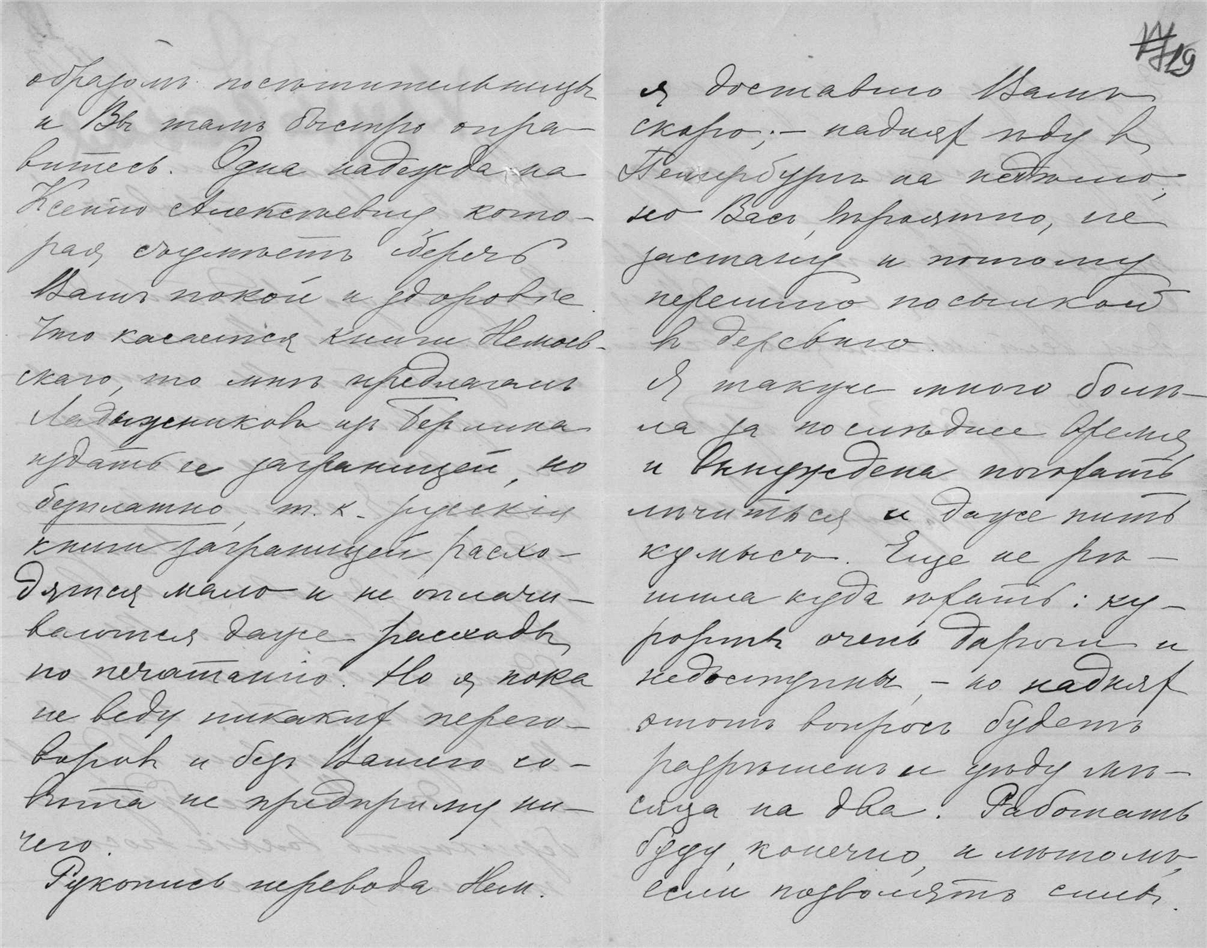 образомъ посѣтительницы
и Вы тамъ быстро опра-
витесь. Одна надежда на
Ксенію Алексѣевну, кото-
рая съумѣетъ сберечь
Вашъ покой и здоровье.
Что касается книги Немоев-
скаго, то мнѣ предлагалъ
Ладыжниковъ изъ Берлина
издать ее заграницей, но
безплатно, т. к. русскія
книги заграницей расхо-
дятся мало и не оплачи-
ваются даже расходы
по печатанію. Но я пока
не веду никакихъ перего-
воровъ и безъ Вашего со-
вѣта не предприму ни-
чего.
Рукопись перевода Нем.
19
я доставлю Вамъ
скоро; – надняхъ ѣду въ
Петербургъ на недѣлю,
но Васъ, вѣроятно, не
застану и потому
перешлю посылкой
въ деревню.
Я также много болѣ-
ла за послѣднее время
и вынуждена поѣхать
лѣчиться и даже пить
кумысъ. Еще не рѣ-
шила куда ѣхать: ку-
рорты очень дороги и
недоступны, – но надняхъ
этотъ вопросъ будетъ
разрѣшенъ и уѣду мѣ-
сяца на два. Работать
буду, конечно, и лѣтомъ,
если позволятъ силы.